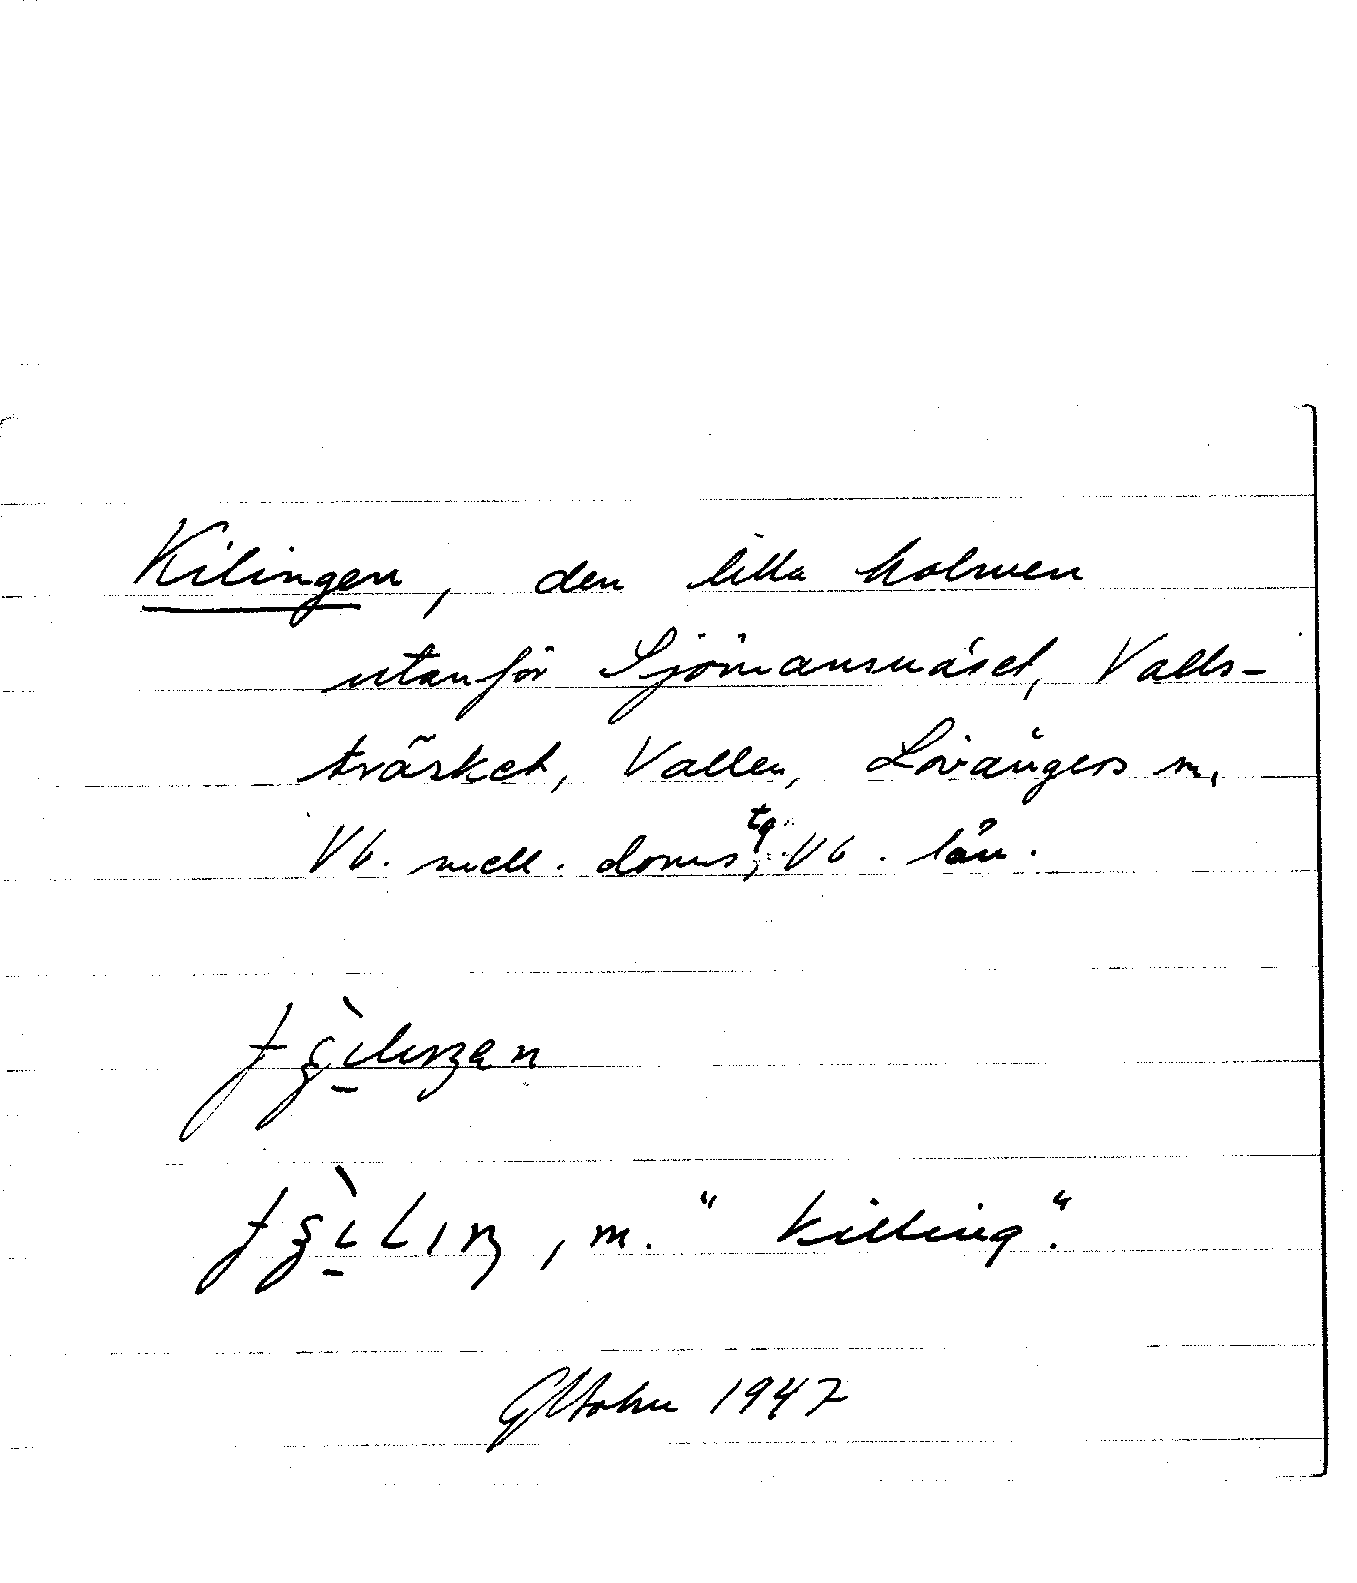 Kilingen, den lilla holmen
utanför Sjömansnäset, Valls-
träsket, Vallen, Lövångers sn,
Vb. mell. doms tg, Vb. län.
m. "killing".
1947